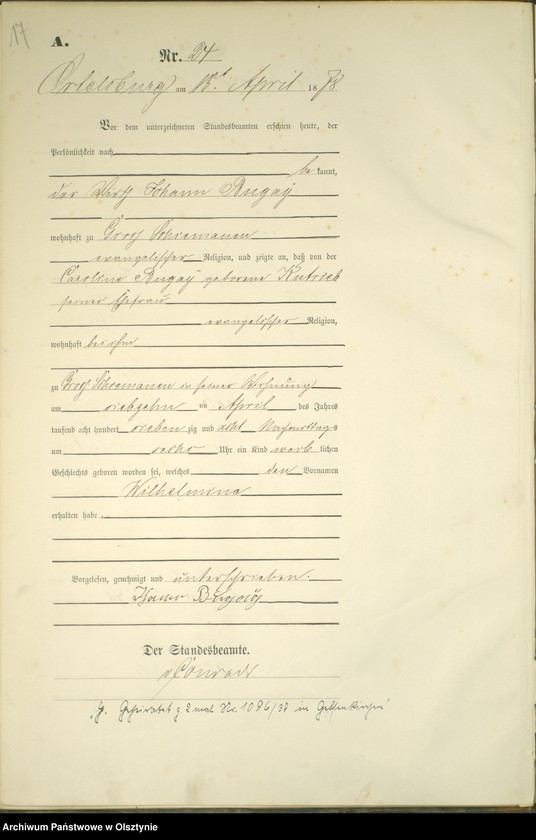 17
A.
Nr. 24
Ortelsburg am April 1878
Vor dem unterzeichneten Standesbeamten erschien heute, der
Persönlichkeit nach
be kannt,
der Wirth Johann Bugay
wohnhaft zu Gross Schiemanen
evangelischer Religion, und zeigte an, daß von der
Caroline Bugay geborene
seiner Ehefrau
evangelischer Religion,
wohnhaft bei ihm
zu Gross Schiemanen in seiner Wohnung
am siebzehn ten April des Jahres
tausend acht hundert sieben zig und acht Nachmittags
um sechs Uhr ein Kind weib lichen
Geschlechts geboren worden sei, welches den Vornamen
Wilhelmina
erhalten habe.
Vorgelesen, genehmigt und unterschrieben.
Bugay
Der Standesbeamte.
Conrad
G. Geheiratet z. 2 mal Nr. 1096/37 in Gelsenkirchen
Archiwum Państwowe w Olsztynie